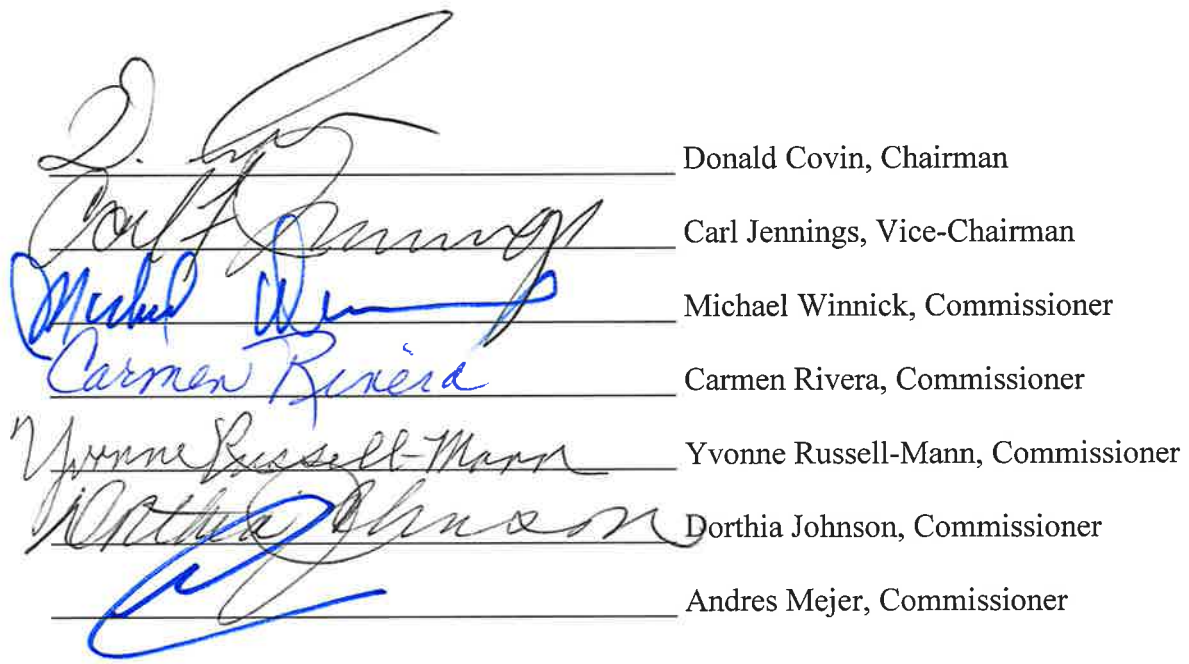 D. Donald Covin, Chairman
Carl F Jennings Carl Jennings, Vice-Chairman
Michael Michael Winnick, Commissioner
Carmen Rivera Carmen Rivera, Commissioner
Yvonne Russell-Mann Yvonne Russell-Mann, Commissioner
Dorthia Johnson Dorthia Johnson, Commissioner
Andres Mejer, Commissioner